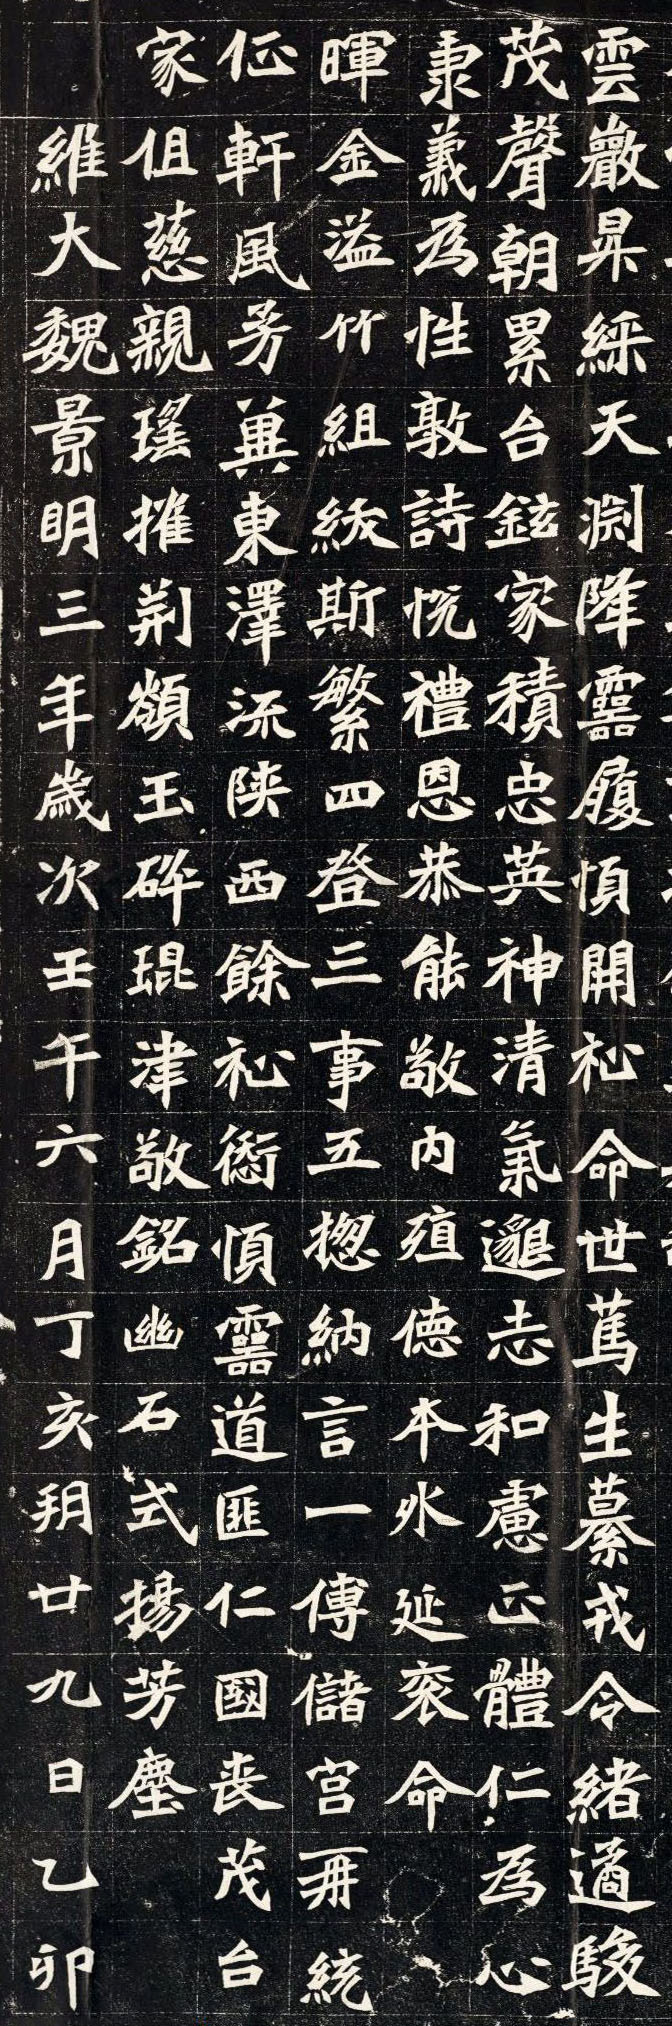 雲巖昇綵天淵降靈履順開祉命世篤生纂戎令緒遹駿
茂聲朝累台鉉家積忠英神清氣邈志和慮正體仁為心
秉羲為性敦詩悅禮恩恭能敬內殖德本外延袞命
暉金溢竹組紱斯繁四登三事五揔納言一傅儲宮再統
征軒風芳冀東澤流陝西餘祉愆順靈道匪仁國喪茂台
家俎慈親瑤摧荊頹玉碎琨津敬銘幽石式揚芳塵
維大魏景明三年歲次壬午六月丁亥朔廿九日乙卯